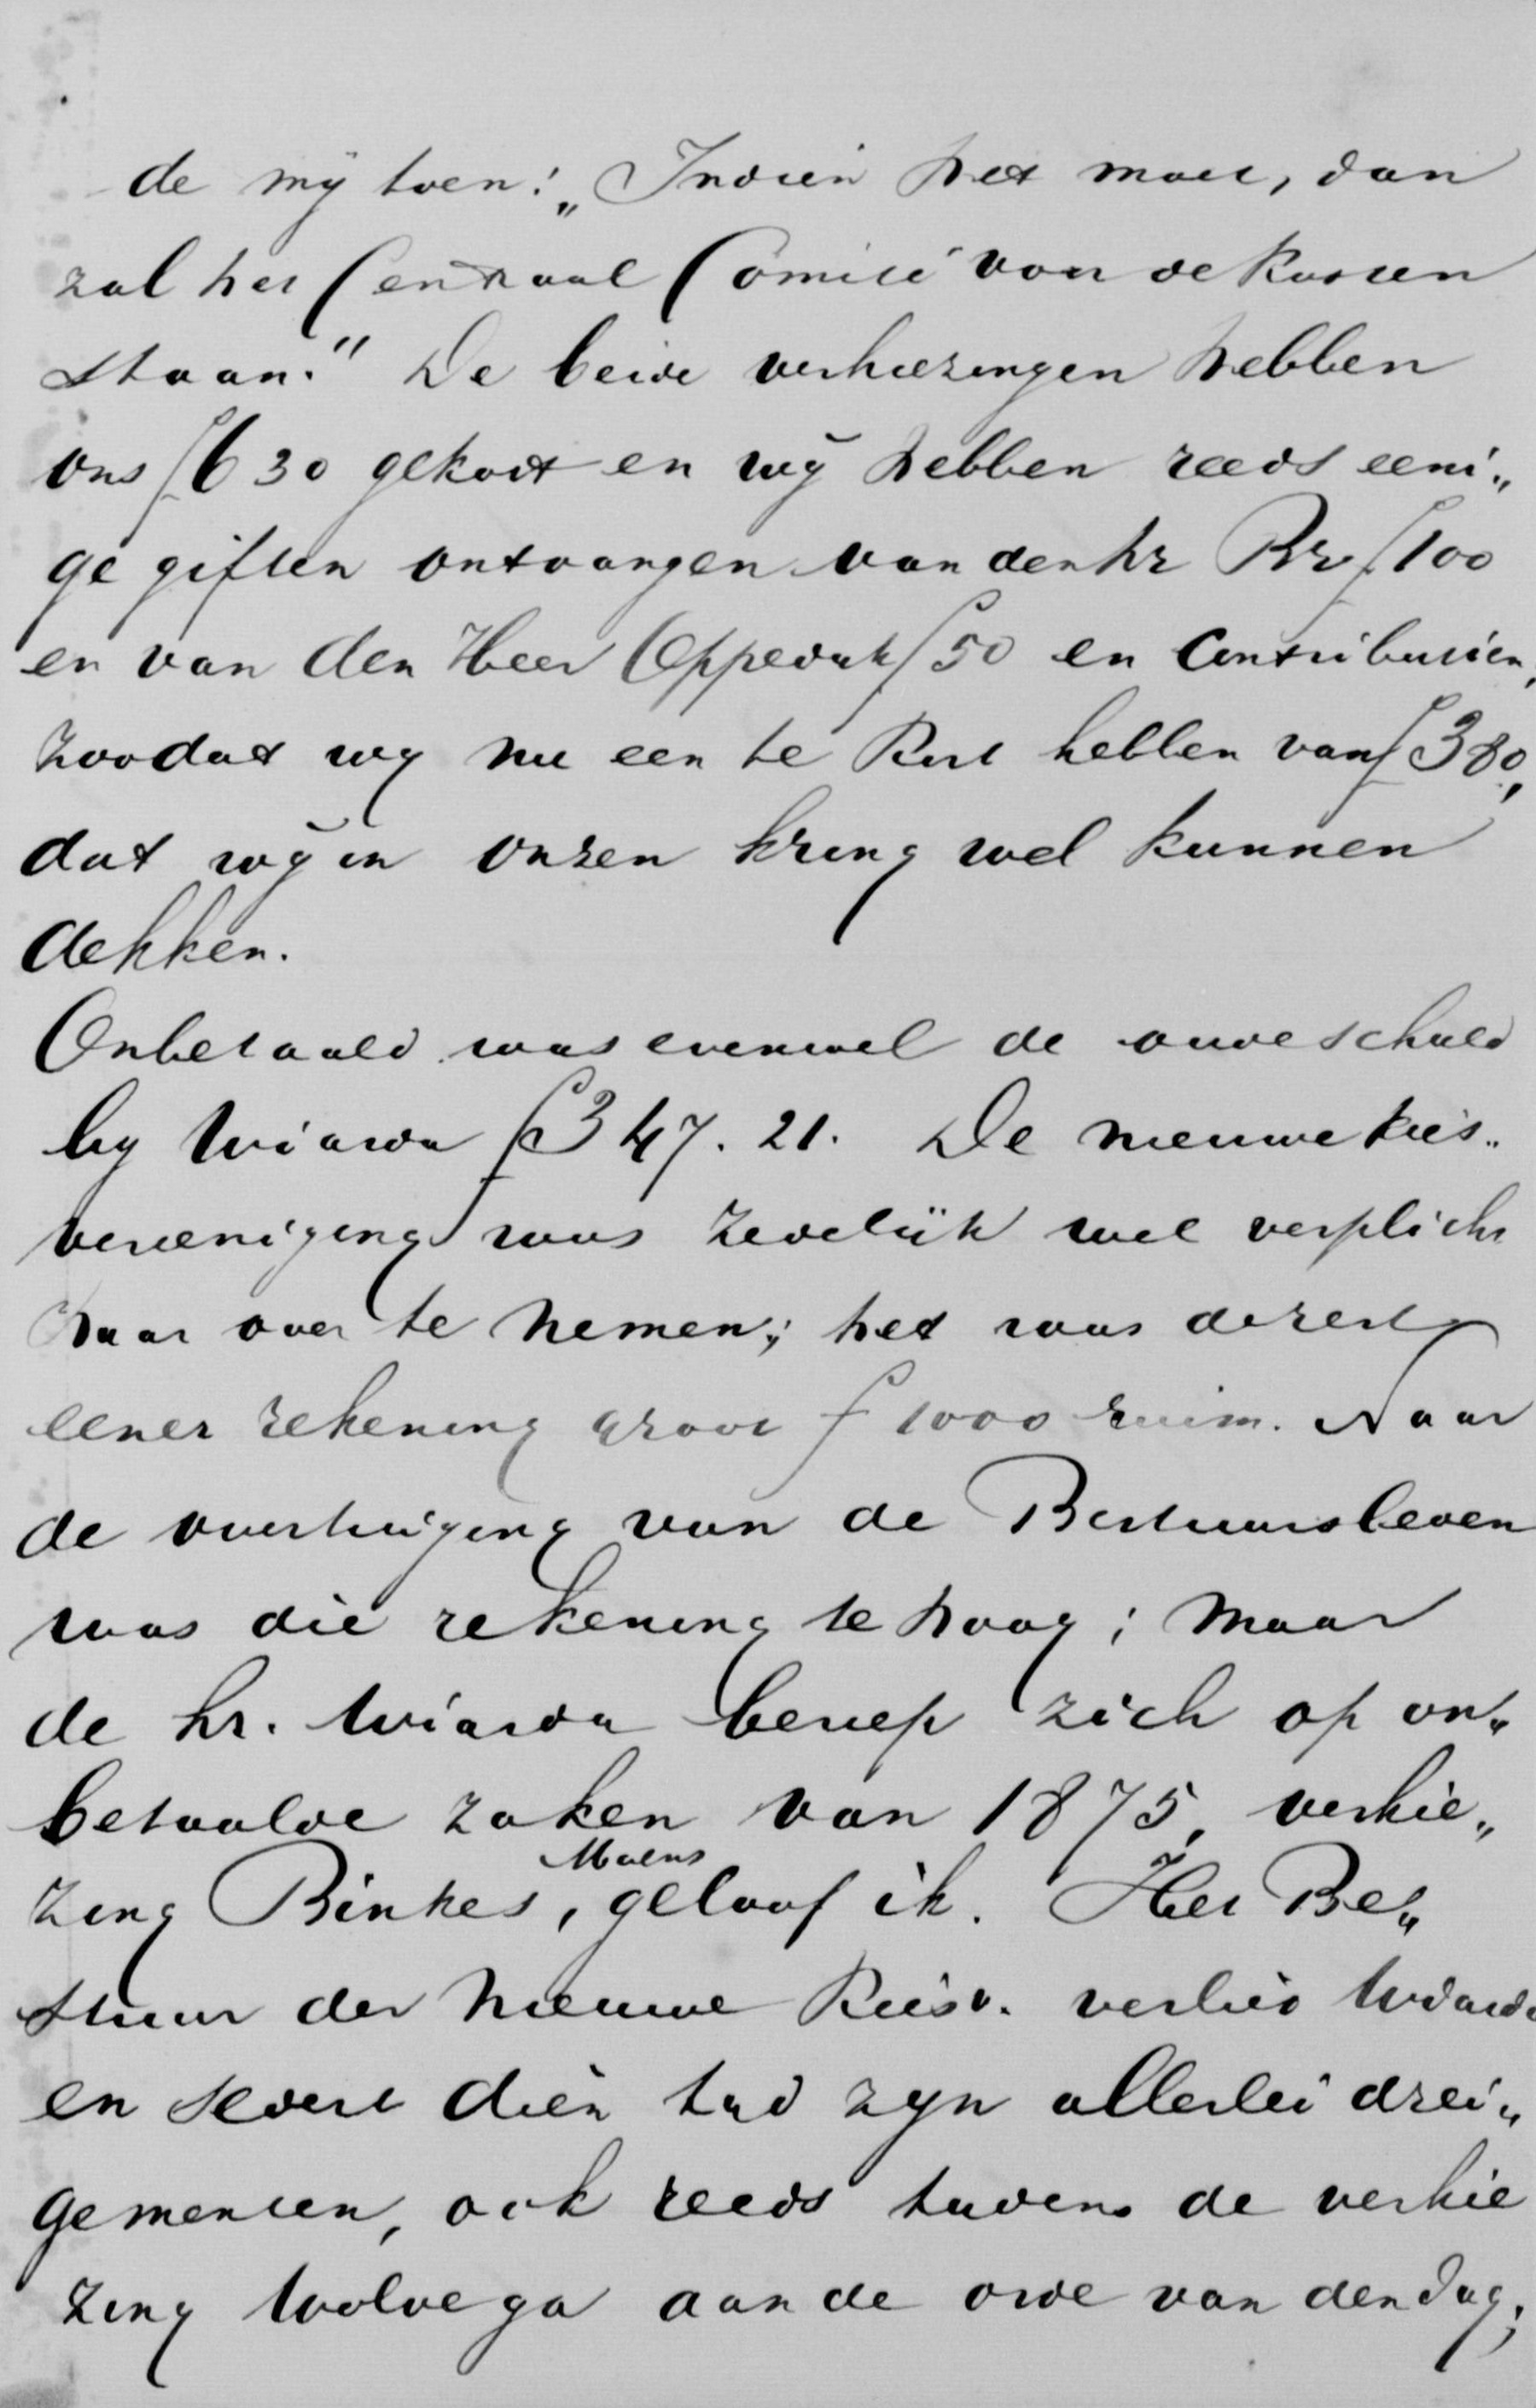 de mij toen: „Indien het moet, dan
zal het Centraal Comité voor de kosten
staan." De beide verkiezingen hebben
ons f630 gekost en wij hebben reeds eeni„
ge giften ontvangen van den hr Br f100
en van den Heer Oppedijk f50 en Contributien,
zoodat wij nu een te kort hebben van f380,
dat wij in onzen kring wel kunnen
dekken.
Onbetaald was evenwel de oude schuld
bij Wiarda f347.21. De nieuwe kies„
vereeniging was zedelijk wel verplicht
haar over te nemen; het was de rest
eener rekening groot f1000 ruim. Naar
de overtuiging van de Bestuursleden
was die rekening te hoog; maar
de hr. Wiarda beriep zich op on„
betaalde zaken van 1875, verkie„
zing Binkes, Moens geloof ik. Het Be„
stuur der nieuwe Kiesv. verliet Wiarda
en sedert dien tijd zijn allerlei drei„
gementen, ook reeds tijdens de verkie
zing Wolvega aan de orde van den dag;